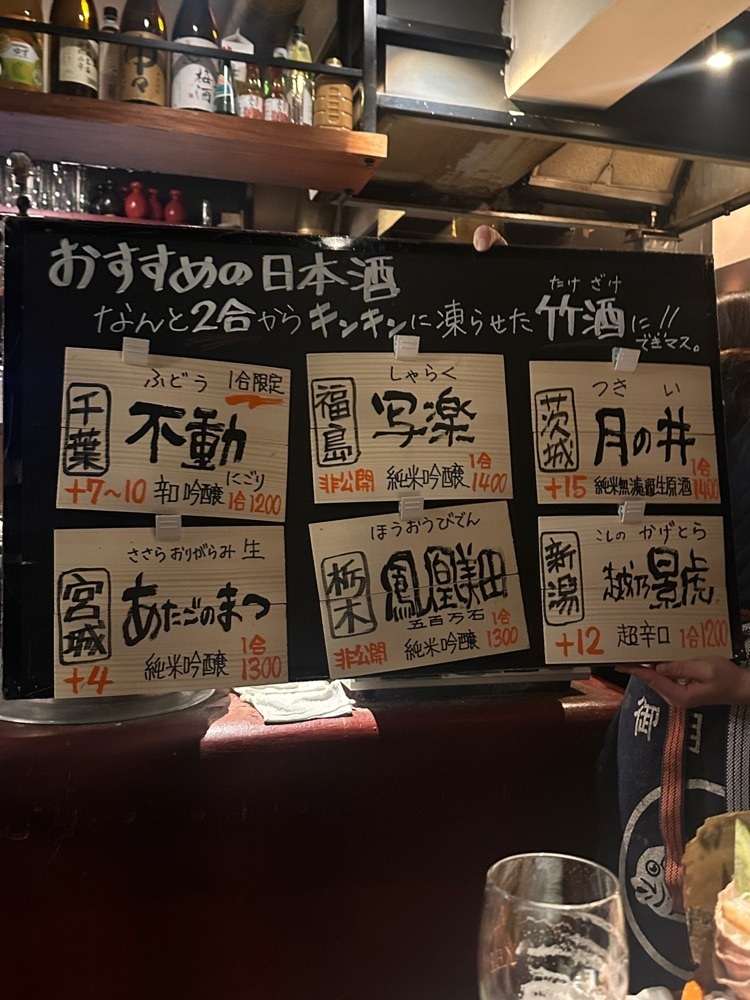 梅酒
中々
おすすめの日本酒
なんと2合からキンキンに凍らせた竹酒に!!
たけざけ
できマス。
ふどう 1合限定
千葉 不動
にごり
+7~10 辛口吟醸 1合1200
しゃらく
福島 写楽
非公開 純米吟醸 1合1400
つきい
茨城 月の井
+15 純米無濾過生原酒 1合1400
ささらおりがらみ 生
宮城 あたごのまつ
+4 純米吟醸 1合1300
ほうおうびでん
栃木 鳳凰美田
五百万石
非公開 純米吟醸 1合1300
こしの かげとら
新潟 越乃景虎
+12 超辛口 1合1200
御